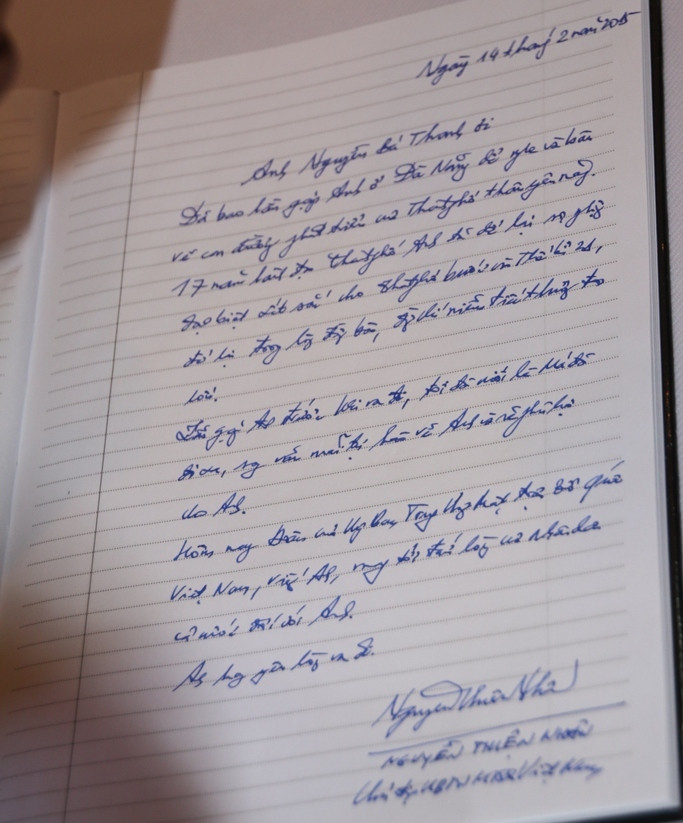 Ngày 14 tháng 2 năm 2015
Anh Nguyễn Bá Thanh ơi
Đã bao lần gặp Anh ở Đà Nẵng để nghe và bàn
về con đường phát triển của Thành phố thân yêu này.
17 năm lãnh đạo Thành phố Anh đã để lại sự nghiệp
đặc biệt sâu sắc cho Thành phố bước vào Thế kỉ 21,
để lại trong lòng đồng bào, đồng chí niềm tin tưởng to
lớn.
Lần gặp Anh trước khi ra đi, tôi đã
vẫn về Anh và
cho Anh.
Hôm nay Đoàn của Ủy Ban Trung Ương Mặt trận Tổ Quốc
Việt Nam, viếng Anh, mang tới tấm lòng của Nhân dân
cả nước đối với Anh.
Anh hãy yên lòng ra đi.
Nguyễn Thiện Nhân
NGUYỄN THIỆN NHÂN
Chủ tịch UBTW MTTQ Việt Nam